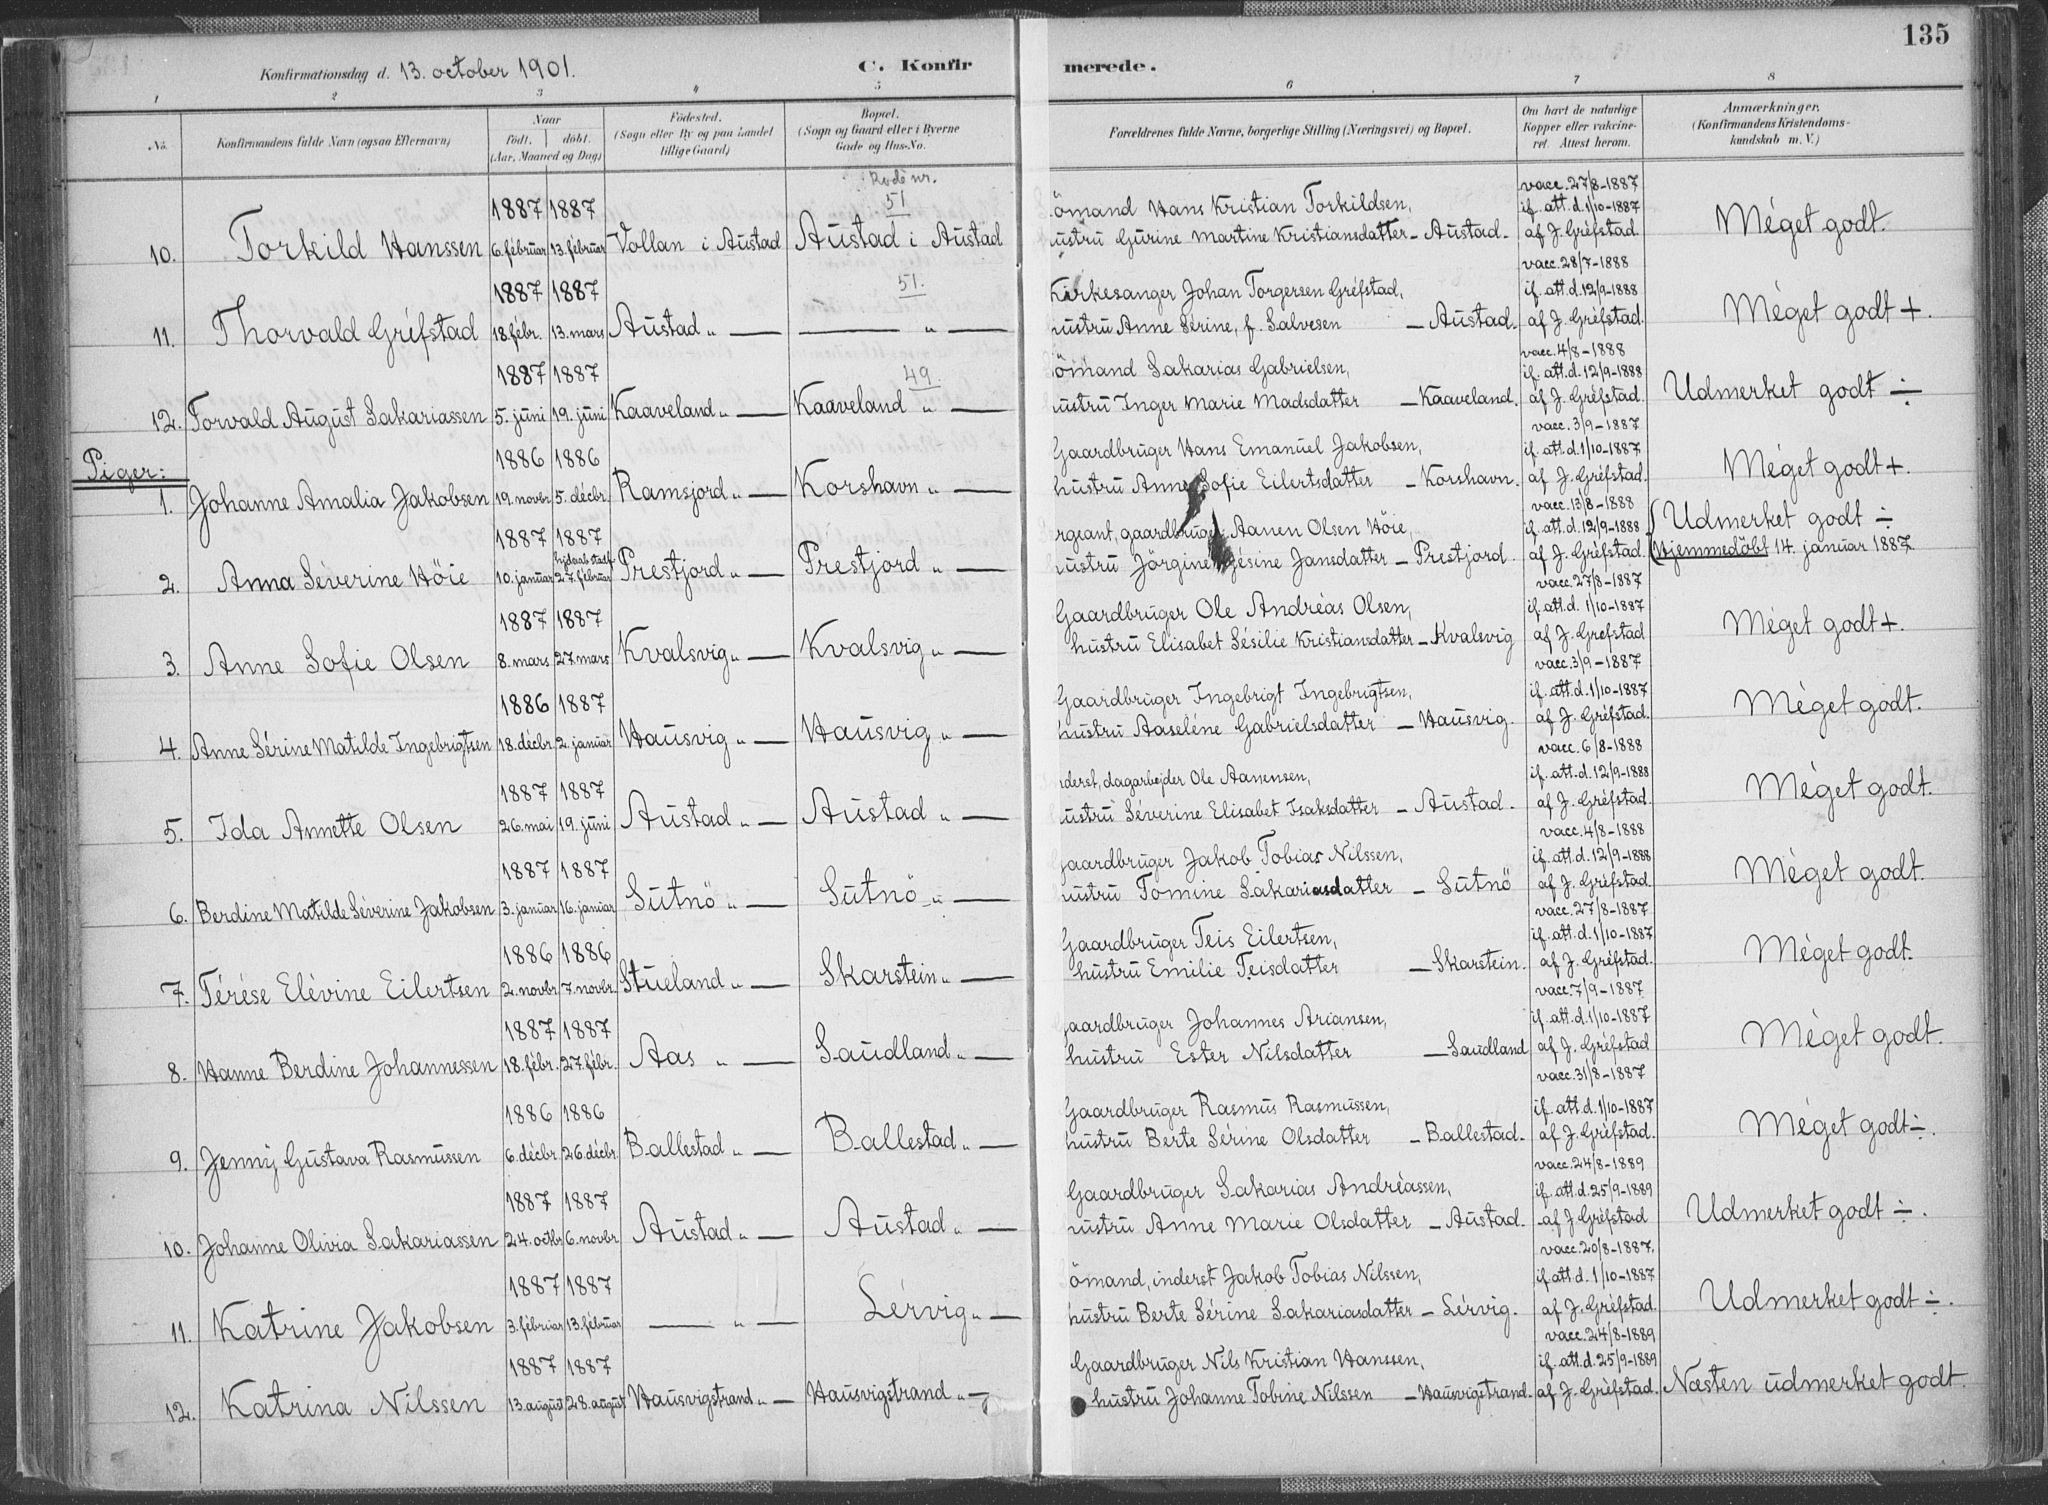 135
Konfirmationsdag d. 13. october 1901. C. Konfir merede.
1 2 3 4 5 6 7 8
No. Konfirmandens fulde Navn (ogsaa Efternavn)
Naar
født. døbt.
(Aar, Maaned og Dag)
Fødested.
(Sogn eller By og paa Landet
tillige Gaard)
Bopæl.
(Sogn og Gaard eller i Byerne
Gade og Hus-No.
Forældrenes fulde Navne, borgerlige Stilling (Næringsvei) og Bopæl.
Om havt de naturlige
Kopper eller vakcine-
ret. Attest herom.
Anmærkninger.
(Konfirmandens Kristendoms-
kundskab m. V.)
Rode nr.
51
1887 1887 ömand Hans Kristian Torkildsen, vacc. 27/8-1887 if. att. d. 1/10-1887
10. Torkild Hanssen 6. februar 13. februar Vollan i Austad Austad i Austad ustru Gurine Martine Kristiansdatter - Austad. af J. Gréfstad. Méget godt.
1887 1887 51. Kirkesanger Johan Torgersen Gréfstad, vacc. 28/7-1888 if. att. d. 12/9-1888
11. Thorvald Gréfstad 18. febr. 13. mars Austad „ — — „ — ustru Anne Sérine, f. Salvesen - Austad. af J. Gréfstad. Méget godt +.
1887 1887 49. ömand Sakarias Gabrielsen, vacc. 4/8-1888 if. att. d. 12/9-1888
12. Torvald August Sakariassen 5. juni 19. juni Kaaveland „ — Kaaveland „ — ustru Inger Marie Madsdatter - Kaaveland. af J. Gréfstad. Udmerket godt ÷
Piger:
1886 1886 Gaardbruger Hans Emanuel Jakobsen, vacc. 3/9-1887 if. att. d. 1/10-1887
1. Johanne Amalia Jakobsen 19. novbr. 5. décbr. Ramsjord „ — Korshavn „ — hustru Anne Sofie Eilertsdatter - Korshavn. af J. Gréfstad. Méget godt +.
1887 1887 rgeant, gaardbruger Aanen Olsen Höie, vacc. 13/8-1888 if. att. d. 12/9-1888 Udmerket godt ÷
2. Anna Séverine Höie 10. januar 27. februar Prestjord „ — Prestjord „ — ustru Jörgine Gésine Jansdatter - Prestjord. af J. Gréfstad. Hjemmedöbt 14. januar 1887.
1887 1887 Gaardbruger Ole Andréas Olsen, vacc. 27/8-1887 if. att. d. 1/10-1887
3. Anne Sofie Olsen 8. mars 27. mars Kvalsvig „ — Kvalsvig „ — hustru Elisabet Sésilie Kristiansdatter - Kvalsvig af J. Grefstad Méget godt +.
1886 1887 Gaardbruger Ingebrigt Ingebrigtsen, vacc. 3/9-1887 if. att. d. 1/10-1887
4. Anne Sérine Matilde Ingebrigtsen 18. décbr. 2. januar Hausvig „ — Hausvig „ — hustru Aaseléne Gabrielsdatter - Hausvig. af J. Gréfstad. Méget godt.
1887 1887 nderst, dagarbejder Ole Aanensen, vacc. 6/8-1888 if. att. d. 12/9-1888
5. Ida Annette Olsen 26. mai 19. juni Austad „ — Austad „ — ustru Séverine Elisabet Isaksdatter - Austad. af J. Gréfstad. Méget godt.
1887 1887 Gaardbruger Jakob Tobias Nilssen, vacc. 4/8-1888 if. att. d. 12/9-1888
6. Berdine Matilde Séverine Jakobsen 3. januar 16. januar Sutnö „ — Sutnö „ — ustru Tomine Sakariasdatter - Sutnö af J. Gréfstad. Méget godt.
1886 1886 Gaardbruger Teis Eilertsen, vacc. 27/8-1887 if. att. d. 1/10-1887
7. Térése Elévine Eilertsen 2. novbr. 7. novbr. Stueland „ — Skarstein „ — hustru Emilie Teisdatter - Skarstein. af J. Gréfstad. Méget godt.
1887 1887 Gaardbruger Johannes Ariansen, vacc. 7/9-1887 if. att. d. 1/10-1887
8. Hanne Berdine Johannessen 18. febr. 27. febr. Aas „ — Saudland „ — hustru Ester Nilsdatter - Saudland af J. Gréfstad Méget godt.
1886 1886 Gaardbruger Rasmus Rasmussen, vacc. 31/8-1887 if. att. d. 1/10-1887
9. Jenny Gustava Rasmussen 6. décbr. 26. décbr. Ballestad „ — Ballestad „ — hustru Berte Sérine Olsdatter - Ballestad. af J. Gréfstad. Méget godt ÷.
1887 1887 Gaardbruger Sakarias Andréassen, vacc. 24/8-1889 if. att. d. 25/9-1889
10. Johanne Olivia Sakariassen 24. octbr. 6. novbr. Austad „ — Austad „ — ustru Anne Marie Olsdatter - Austad. af J. Gréfstad Udmerket godt ÷.
1887 1887 ömand, inderst Jakob Tobias Nilssen, vacc. 20/8-1887. if. att. d. 1/10-1887
11. Katrine Jakobsen 3. februar 13. februar — „ — Lérvig „ — hustru Berte Sérine Sakariasdatter - Lérvig. af J. Gréfstad. Udmerket godt ÷.
1887 1887 Gaardbruger Nils Kristian Hanssen, vacc. 24/8-1889 if. att. d. 25/9-1889
12. Katrina Nilssen 13. august 28. august Hausvigstrand „ — Hausvigstrand „ — hustru Johanne Tobine Nilssen - Hausvigstrand. af J. Gréfstad. Næsten udmerket godt.